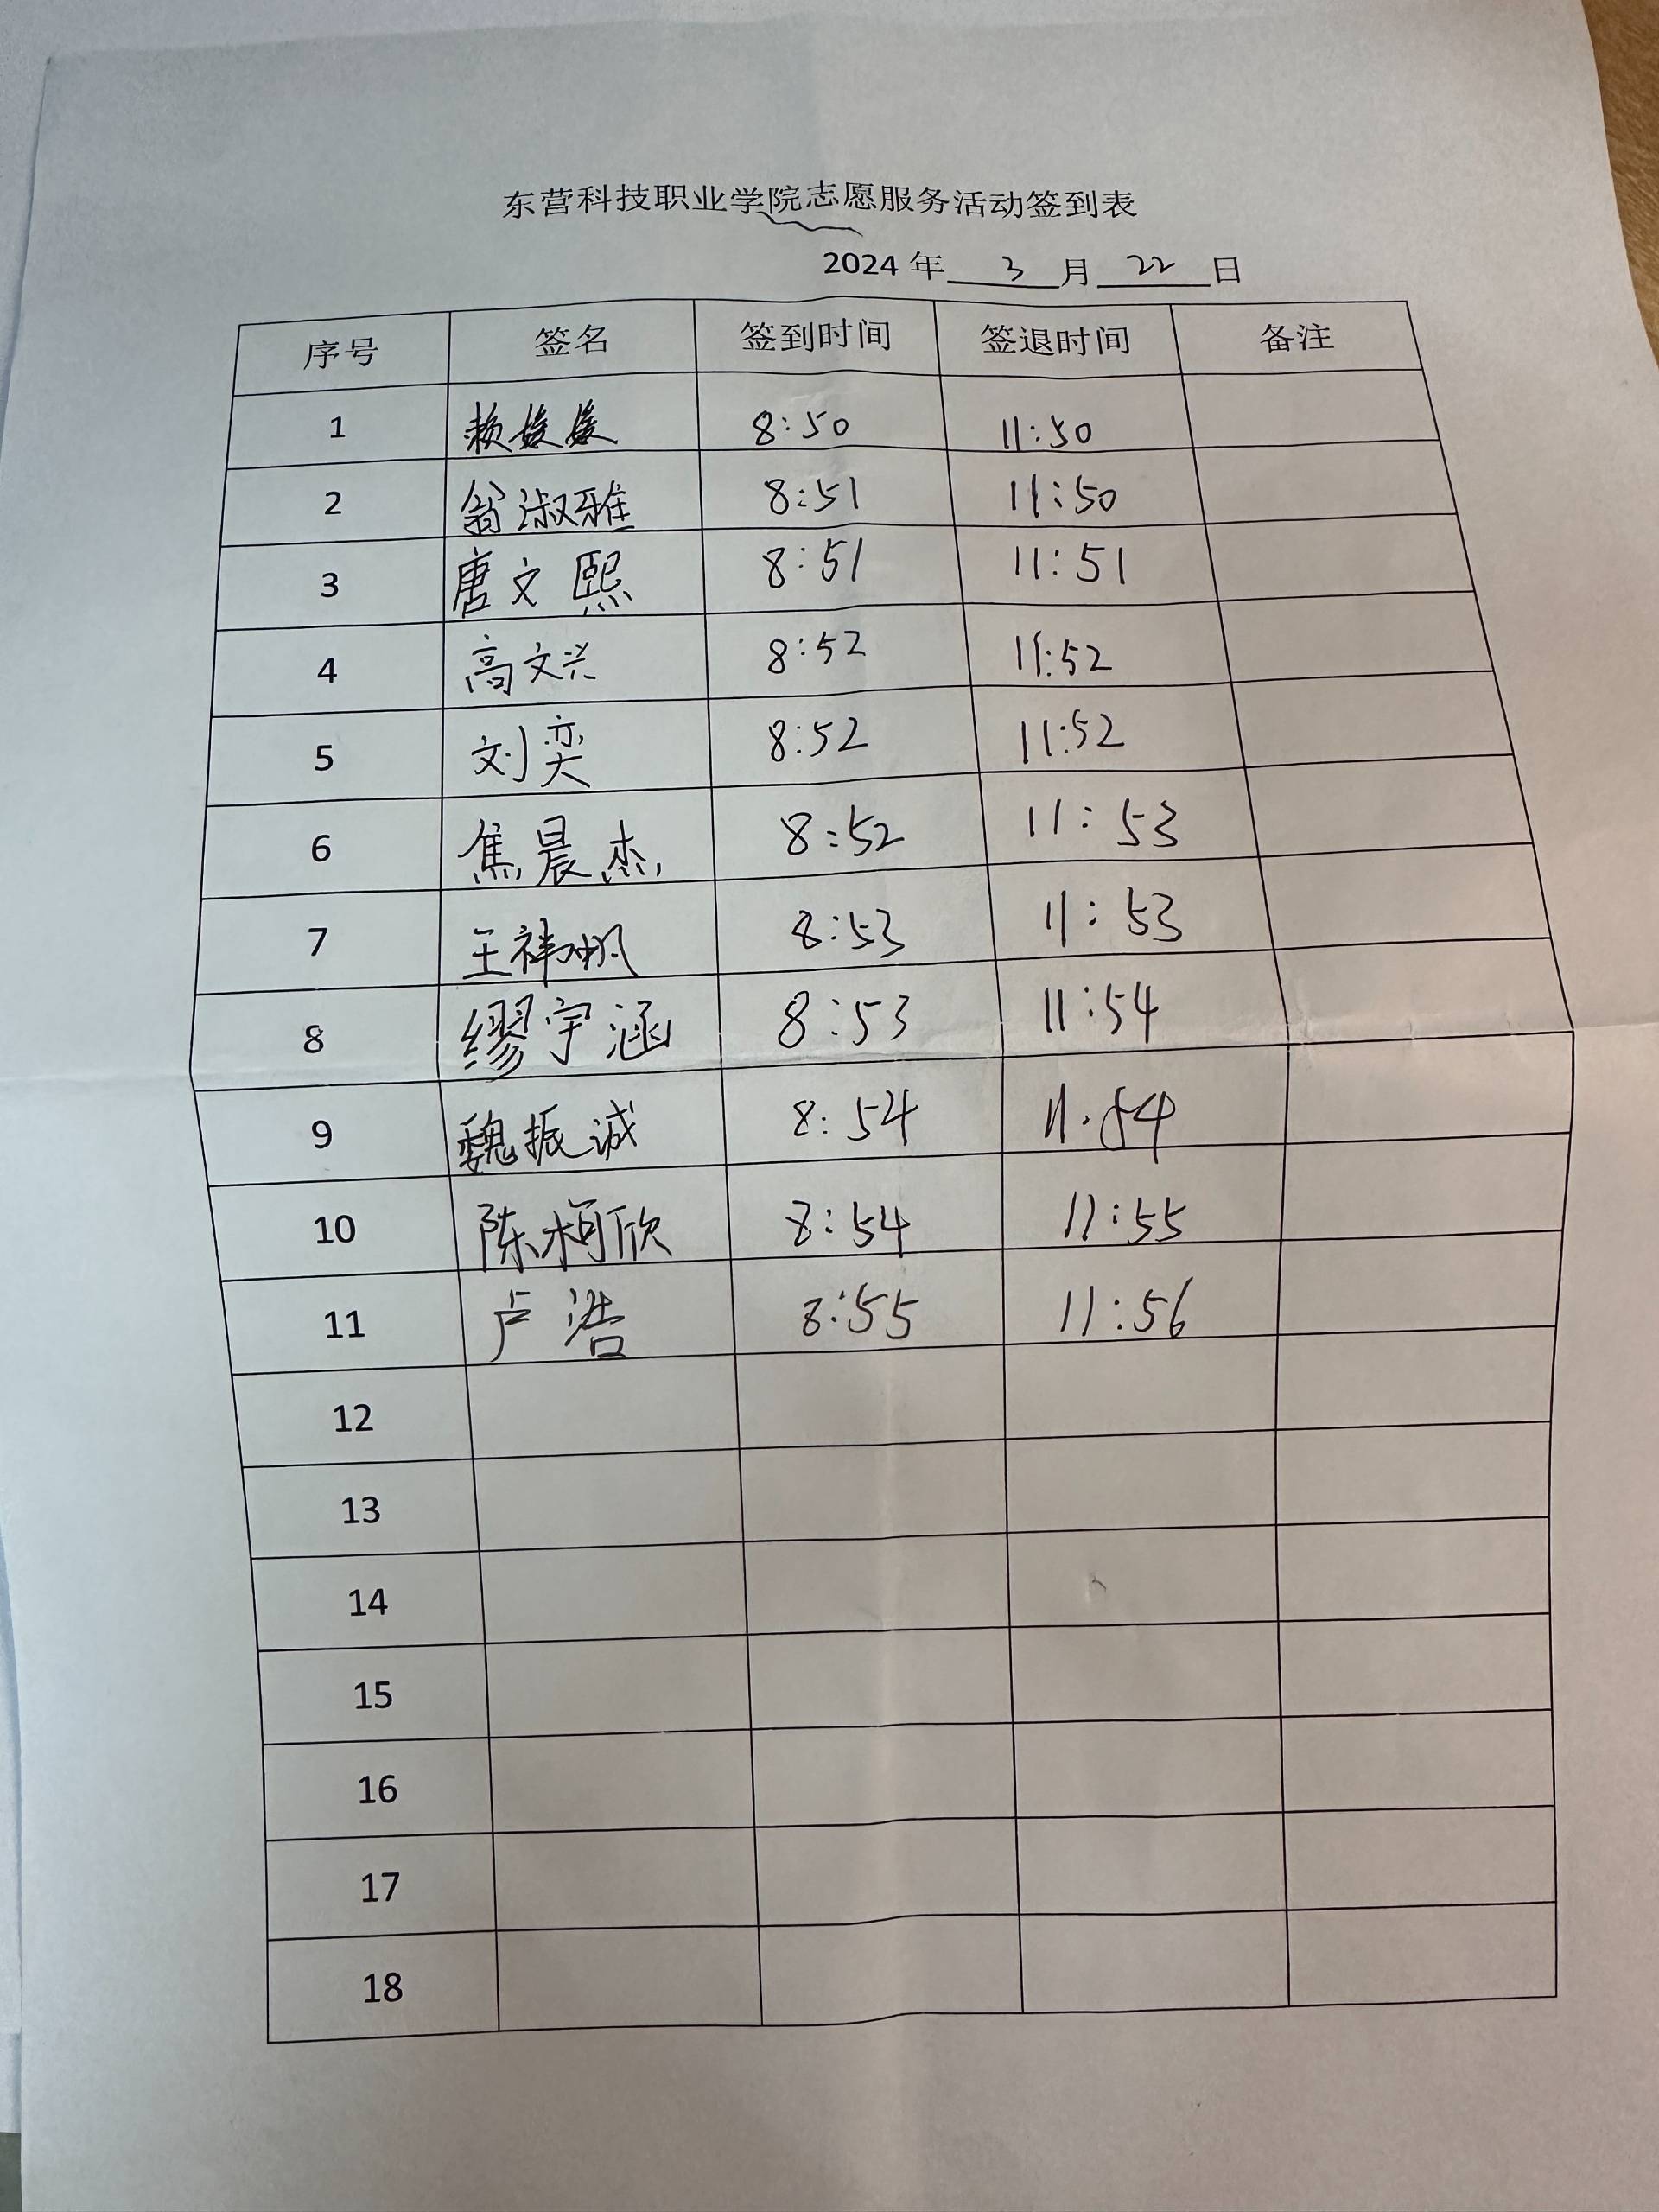 东营科技职业学院志愿服务活动签到表
2024 年 3 月 22 日
序号 签名 签到时间 签退时间 备注
1 赖媛媛 8:50 11:50
2 翁淑雅 8:51 11:50
3 唐文熙 8:51 11:51
4 高文兴 8:52 11:52
5 刘奕 8:52 11:52
6 焦晨杰 8:52 11:53
7 王祎帆 8:53 11:53
8 缪宇涵 8:53 11:54
9 魏振诚 8:54 11.54
10 陈柯欣 8:54 11:55
11 卢浩 8:55 11:56
12
13
14
15
16
17
18